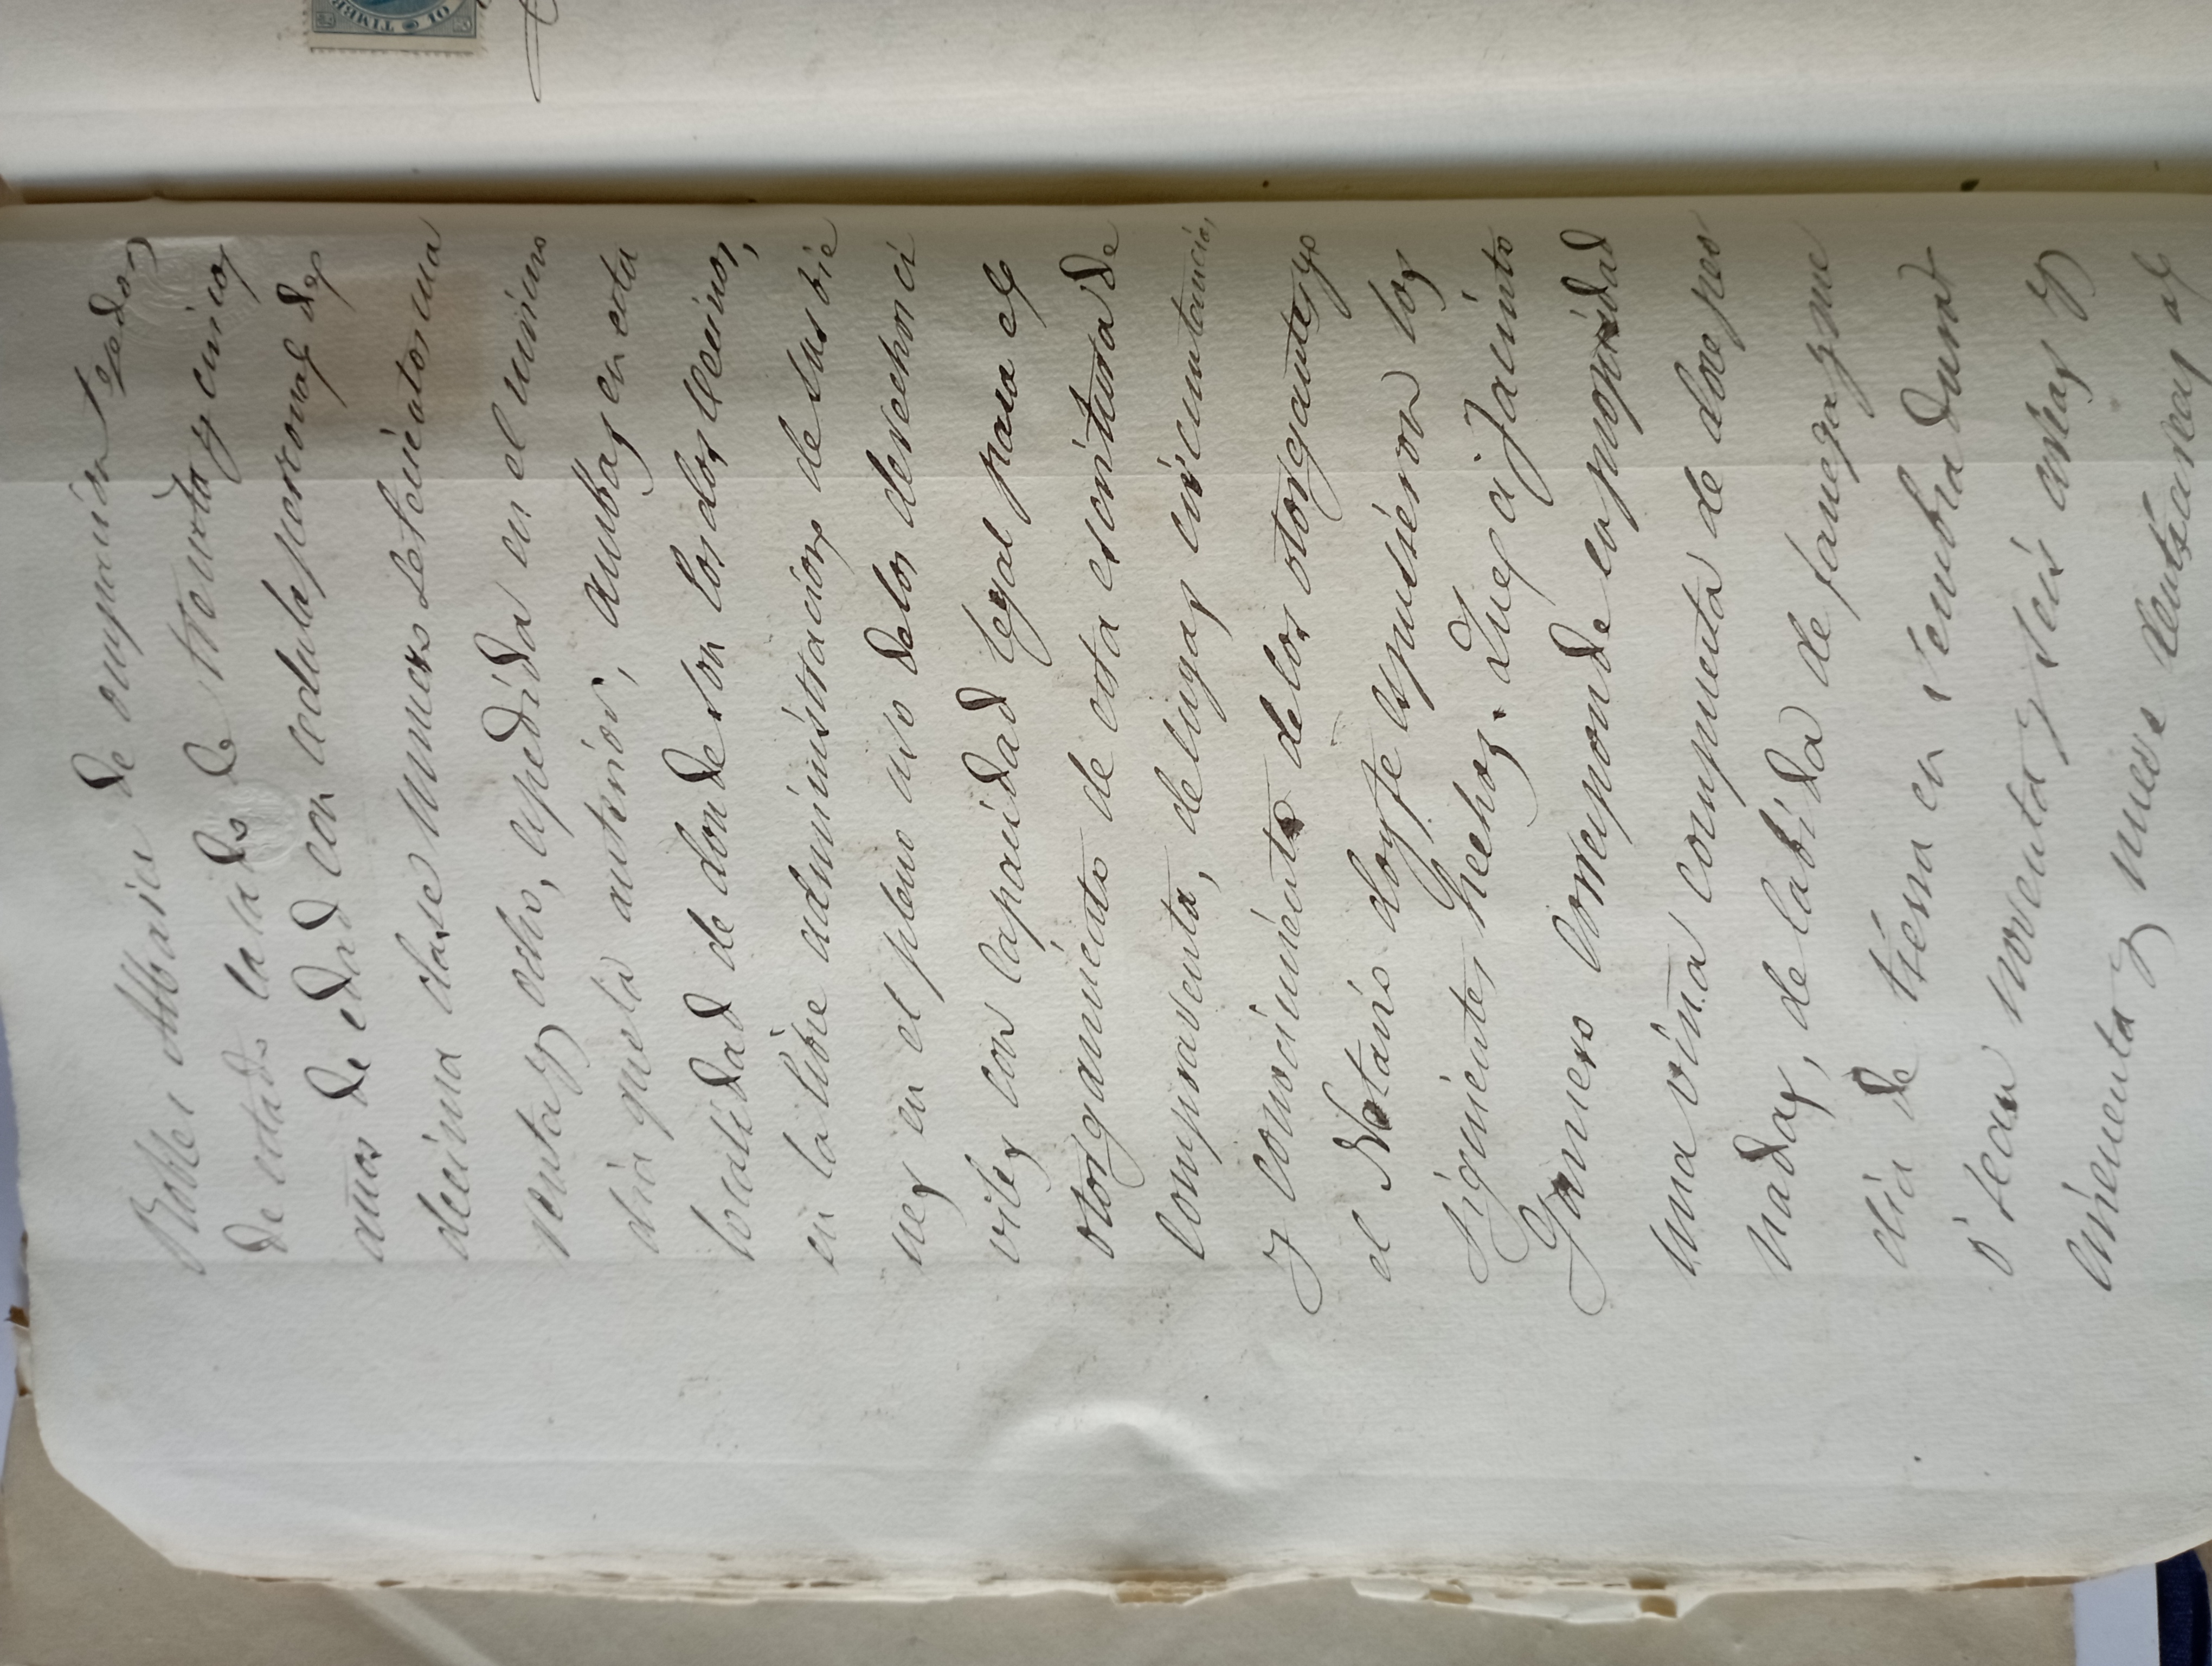 Robles Albaicer de ocupación Tejedor
de estado casado de treinta y cinco
años de edad con cedula personal de
decima clase numero setecientos no
venta y ocho, espedida en el mismo
dia que la anterior, ambas en esta
localidad de donde son los dos vecinos,
en la libre administracion de sus bie
nes en el pleno uso de los derechos ci
viles con capacidad legal para el
otorgamiento de esta escritura de
compraventa, de cuyas circunstancias
y conocimiento de los otorgantes yo
el Notario doy fe espusieron los
siguientes hechos. Que a Jacinto
Gamero corresponde en propiedad
una viña compuesta de doce peo
nadas, de cabida de fanega y me
dia de tierra en sembradura
ó sean noventa y seis areas y
cincuenta y nueve centiareas al
TIMBRE